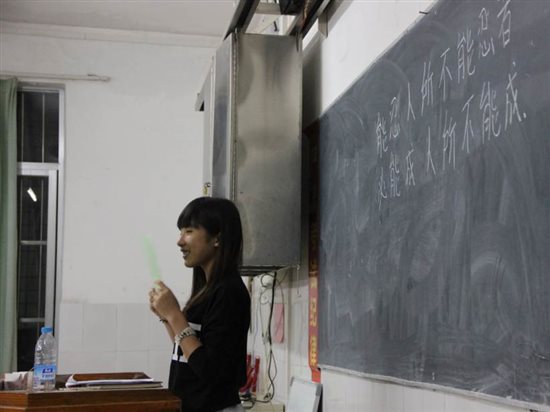 能忍人所不能忍者
必能成人所不能成.